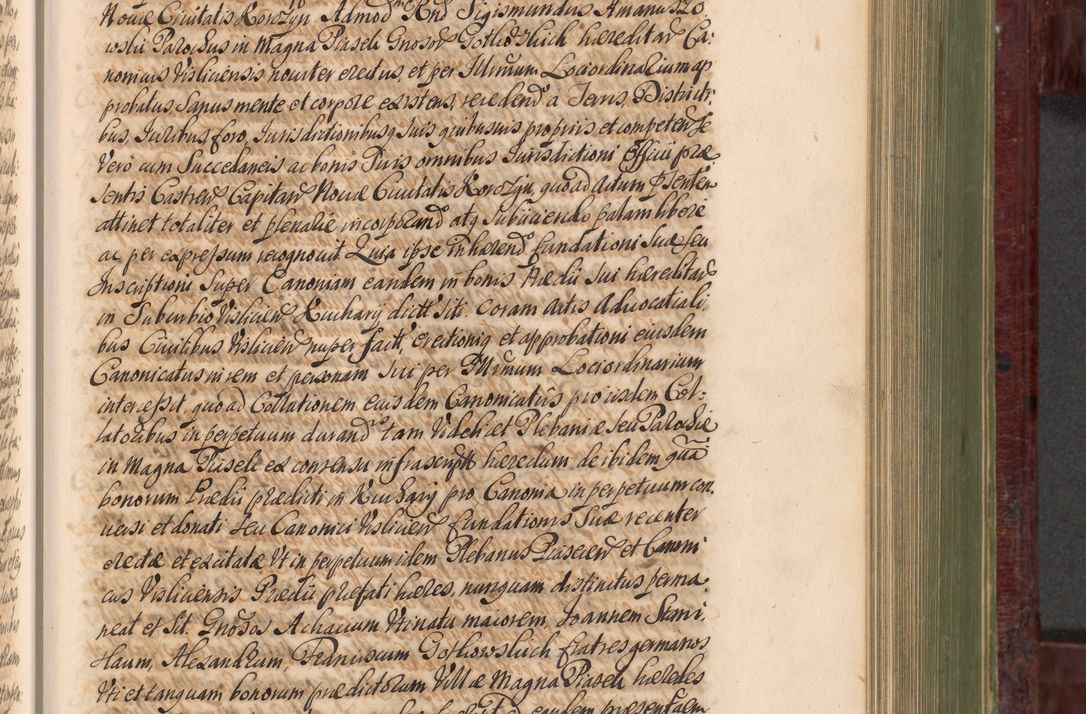 Novæ Civitatis Korczyn Admod. Rnd Sigismundus Amanus
Parochus in Magna Piaseli Gnosor Gothowskich hæreditar Ca:
nonicus Visliciensis noviter erectus, et per Illrmum Lociordinarium ap
probatus, Sanus mente et corpore existens, recedendo a Terris, District:
bus, Iuribus, foro, Iurisdictionibusq suis quibusvis propriis et competen Se
vero cum Succedaneis ac bonis Suis omnibus Iurisdictioni Officii præ
sentis Castren Capitan Novæ Civitatis Korczyn, quo ad Actum psenten
attinet totaliter et plenarie incorporando atq subiiciendo palam libere
ac per expressum recognovit Quia ipse inhærendo fundationi Suæ seu
Inscriptioni super Canoniam eandem in bonis Prædii sui hæreditar
in Suburbio Vislicien Kuchary dict siti coram Actis Advocatiali:
bus Civilibus Vislicien nuper fact, erectioniq et approbationi eiusdem
Canonicatus in rem et personam sui per Illrmum Lociordinarium
intercessit, quo ad Collationem eiusdem Canonicatus pro iisdem Col:
latoribus in perpetuum durando tam videlicet Plebaniæ seu Parochiæ
in Magna Piaseli ex consensu infrascript hæredum de ibidem quā
bonorum Prædii prædicti in Kuchary pro Canonia in perpetuum con:
versi et donati seu Canonici Vislicien fundationis Suæ recenter
erectæ et excitatæ Vt in perpetuum idem Plebanus Piasecien et Canoni
cus Visliciensis Prædii præfati hæres, nunquam distinctus perma:
neat et sit. Gnosos Achacium Vti natu maiorem, Joannem Stani:
slaum, Alexandrum, Franciscum Gothowskich fratres germanos
Vti et tanquam bonorum prædictorum Villæ Magna Piaseli hæredes
eosdem præsentem